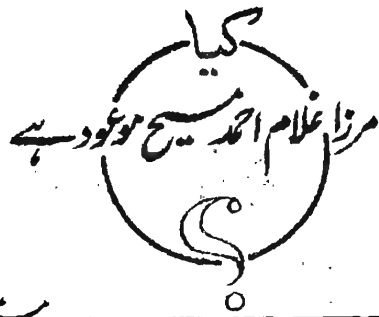 کیا
مرزا غلام احمد مسیح موعود ہے
؟